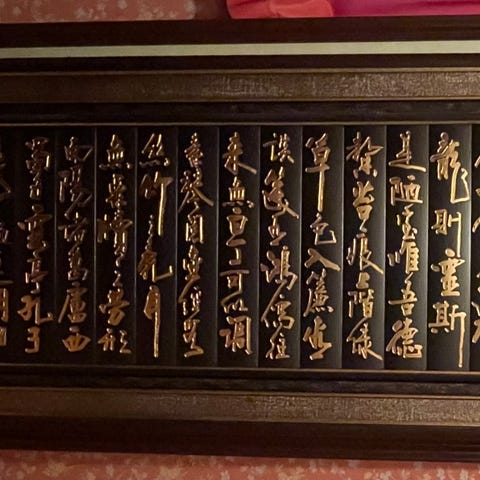 龍則靈斯
是陋室唯吾德
馨苔痕上階綠
草色入簾青
談笑有鴻儒往
來無白丁可以調
素琴閱金經無
絲竹之亂耳
無案牘之勞形
南陽諸葛廬西
蜀子雲亭孔子